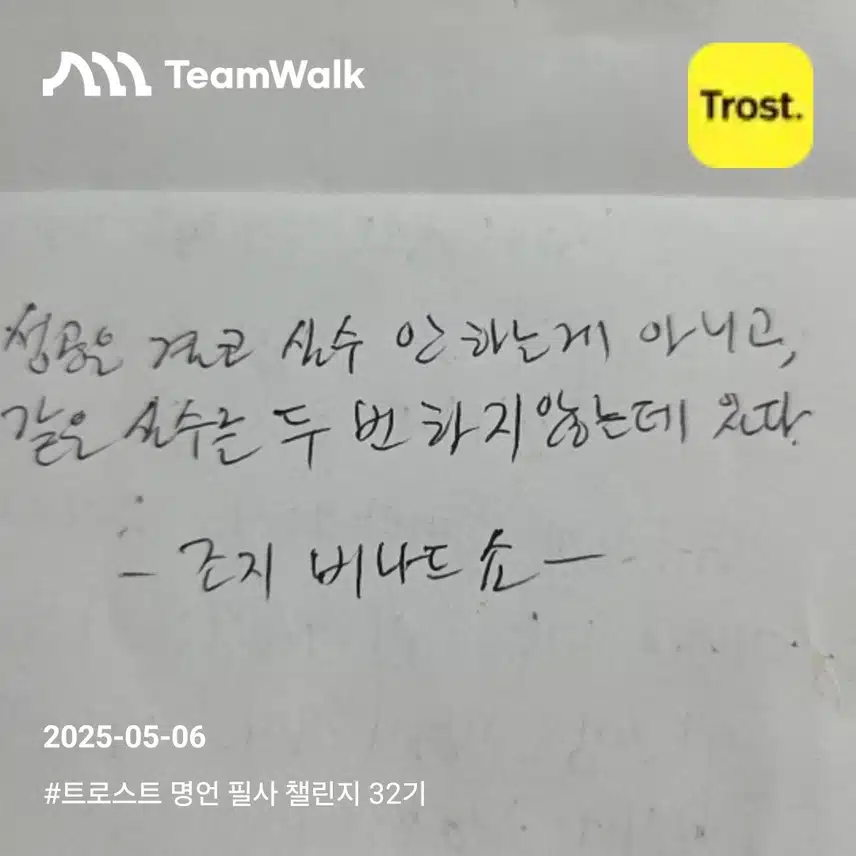 TeamWalk
Trost.
성공은 결코 실수 안 하는게 아니고,
같은 실수를 두 번 하지 않는데 있다.
- 조지 버나드 쇼 -
2025-05-06
#트로스트 명언 필사 챌린지 32기